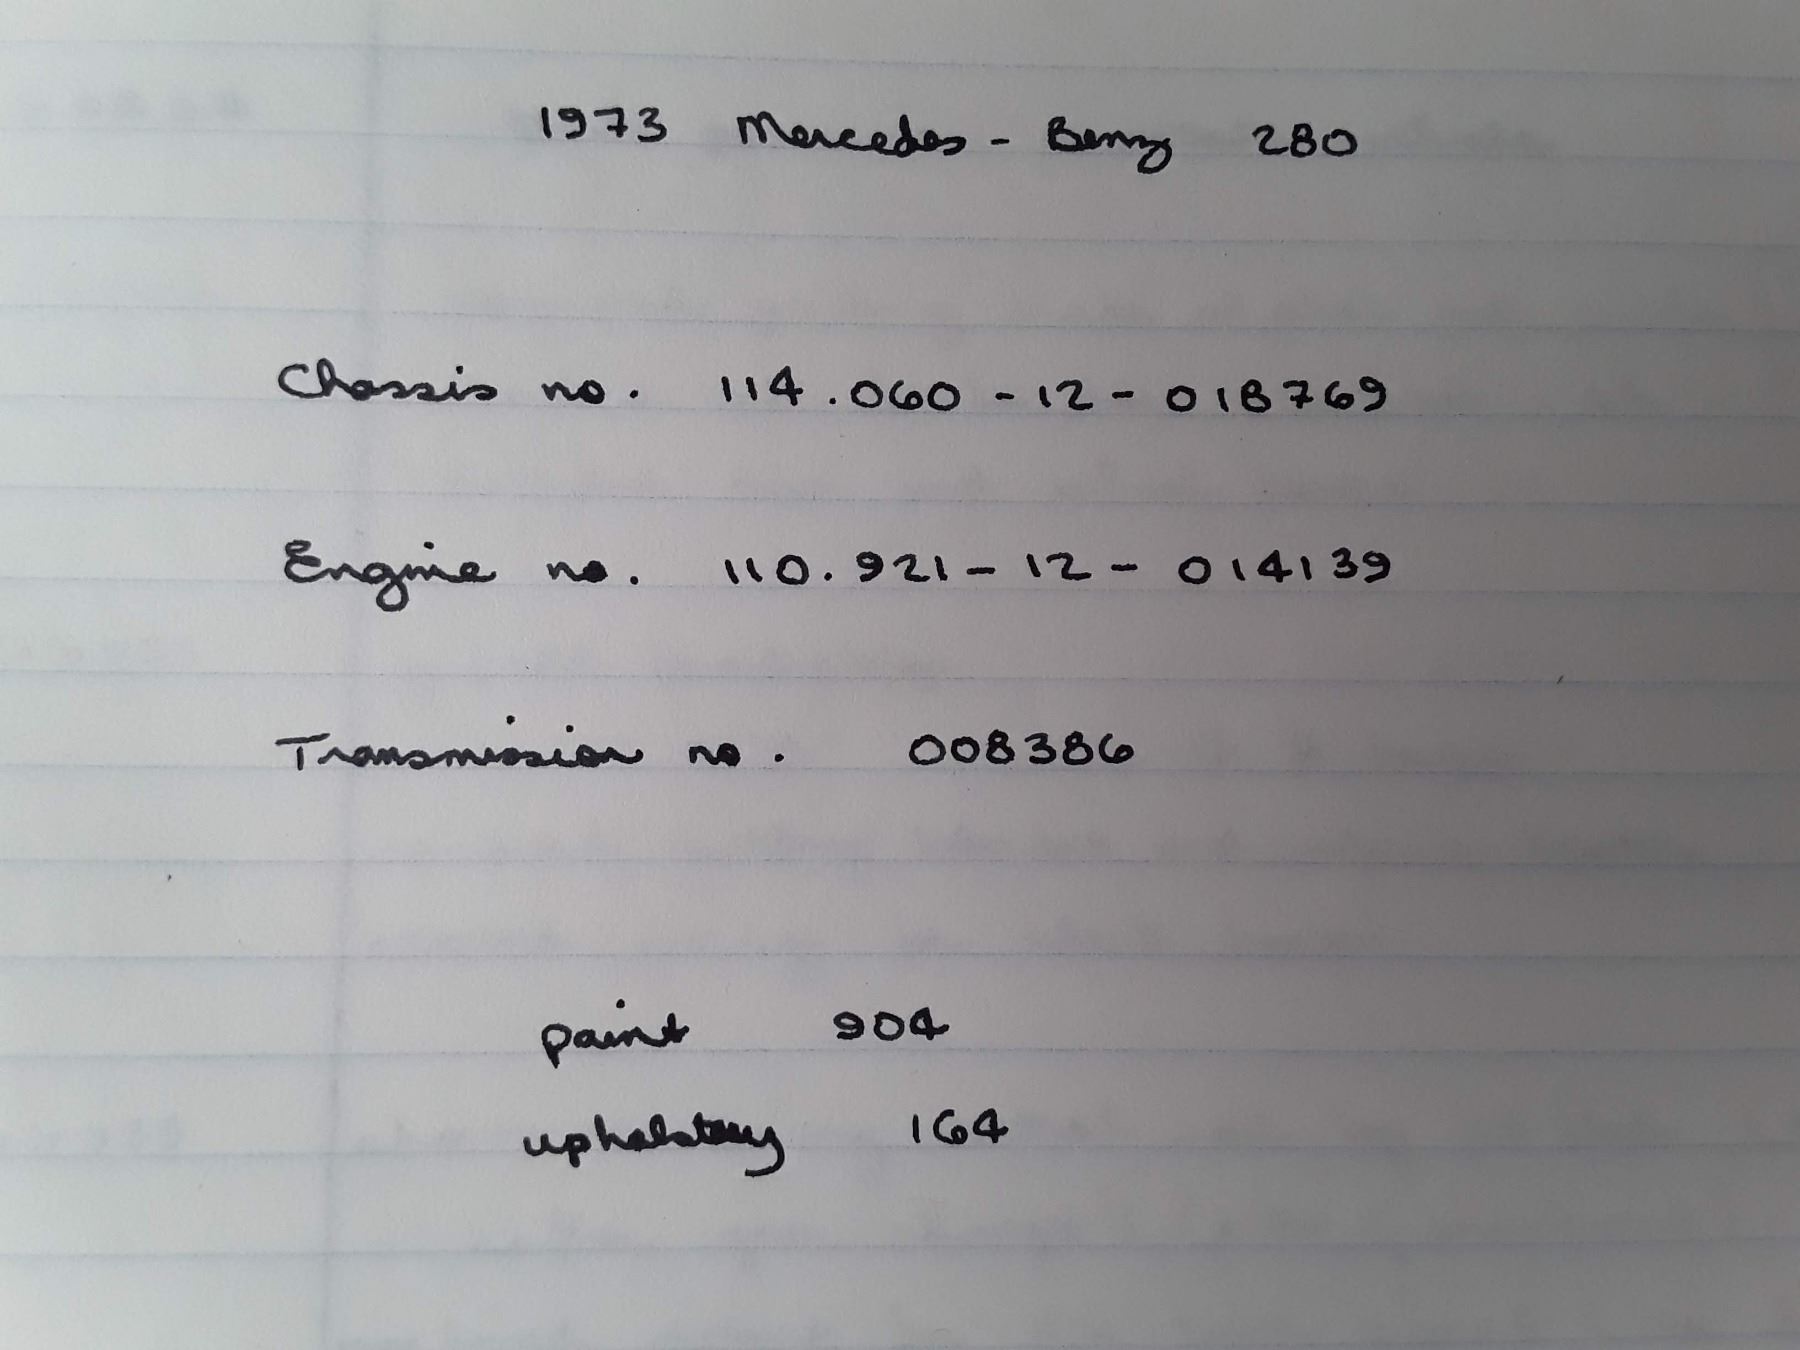 1973 Mercedes - Benz 280
Chassis no. 114.060 - 12 - 018769
Engine no. 110.921 - 12 - 014139
Transmission no. 008386
paint 904
upholstery 164